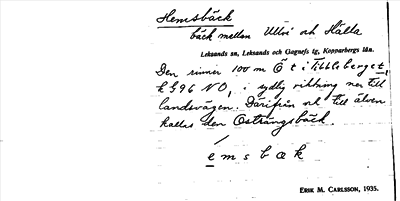 Hemsbäck
bäck mellan Ullvi och Hälla
Leksands sn, Leksands och Gagnefs tg, Kopparbergs län.
Den rinner 100 m Ö t i Tibbleberget,
k 596 NO, i sydlig riktning ner till
landsvägen. Därifrån och till älven
kallas den Österängsbäck.
emsbæk
ERIK M. CARLSSON, 1935.